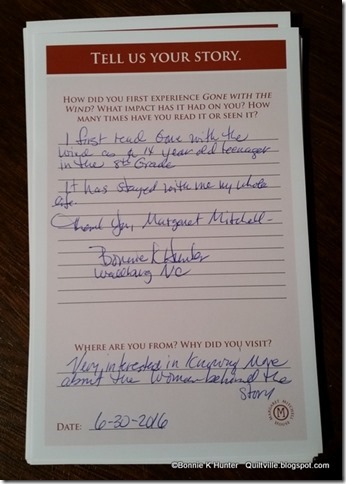 TELL US YOUR STORY.
HOW DID YOU FIRST EXPERIENCE GONE WITH THE
WIND? WHAT IMPACT HAS IT HAD ON YOU? HOW
MANY TIMES HAVE YOU READ IT OR SEEN IT?
I first read Gone with the
wind as a 14 year old teenager
in the 8th Grade
It has stayed with me my whole
life.
Thank You, Margaret Mitchell-
Bonnie K Hunter
Wallburg NC
WHERE ARE YOU FROM? WHY DID YOU VISIT?
Very interested in Knowing More
about the Woman behind the
Story
DATE: 6-30-2016
MARGARET MITCHELL
HOUSE
M
©Bonnie K Hunter Quiltville.blogspot.com